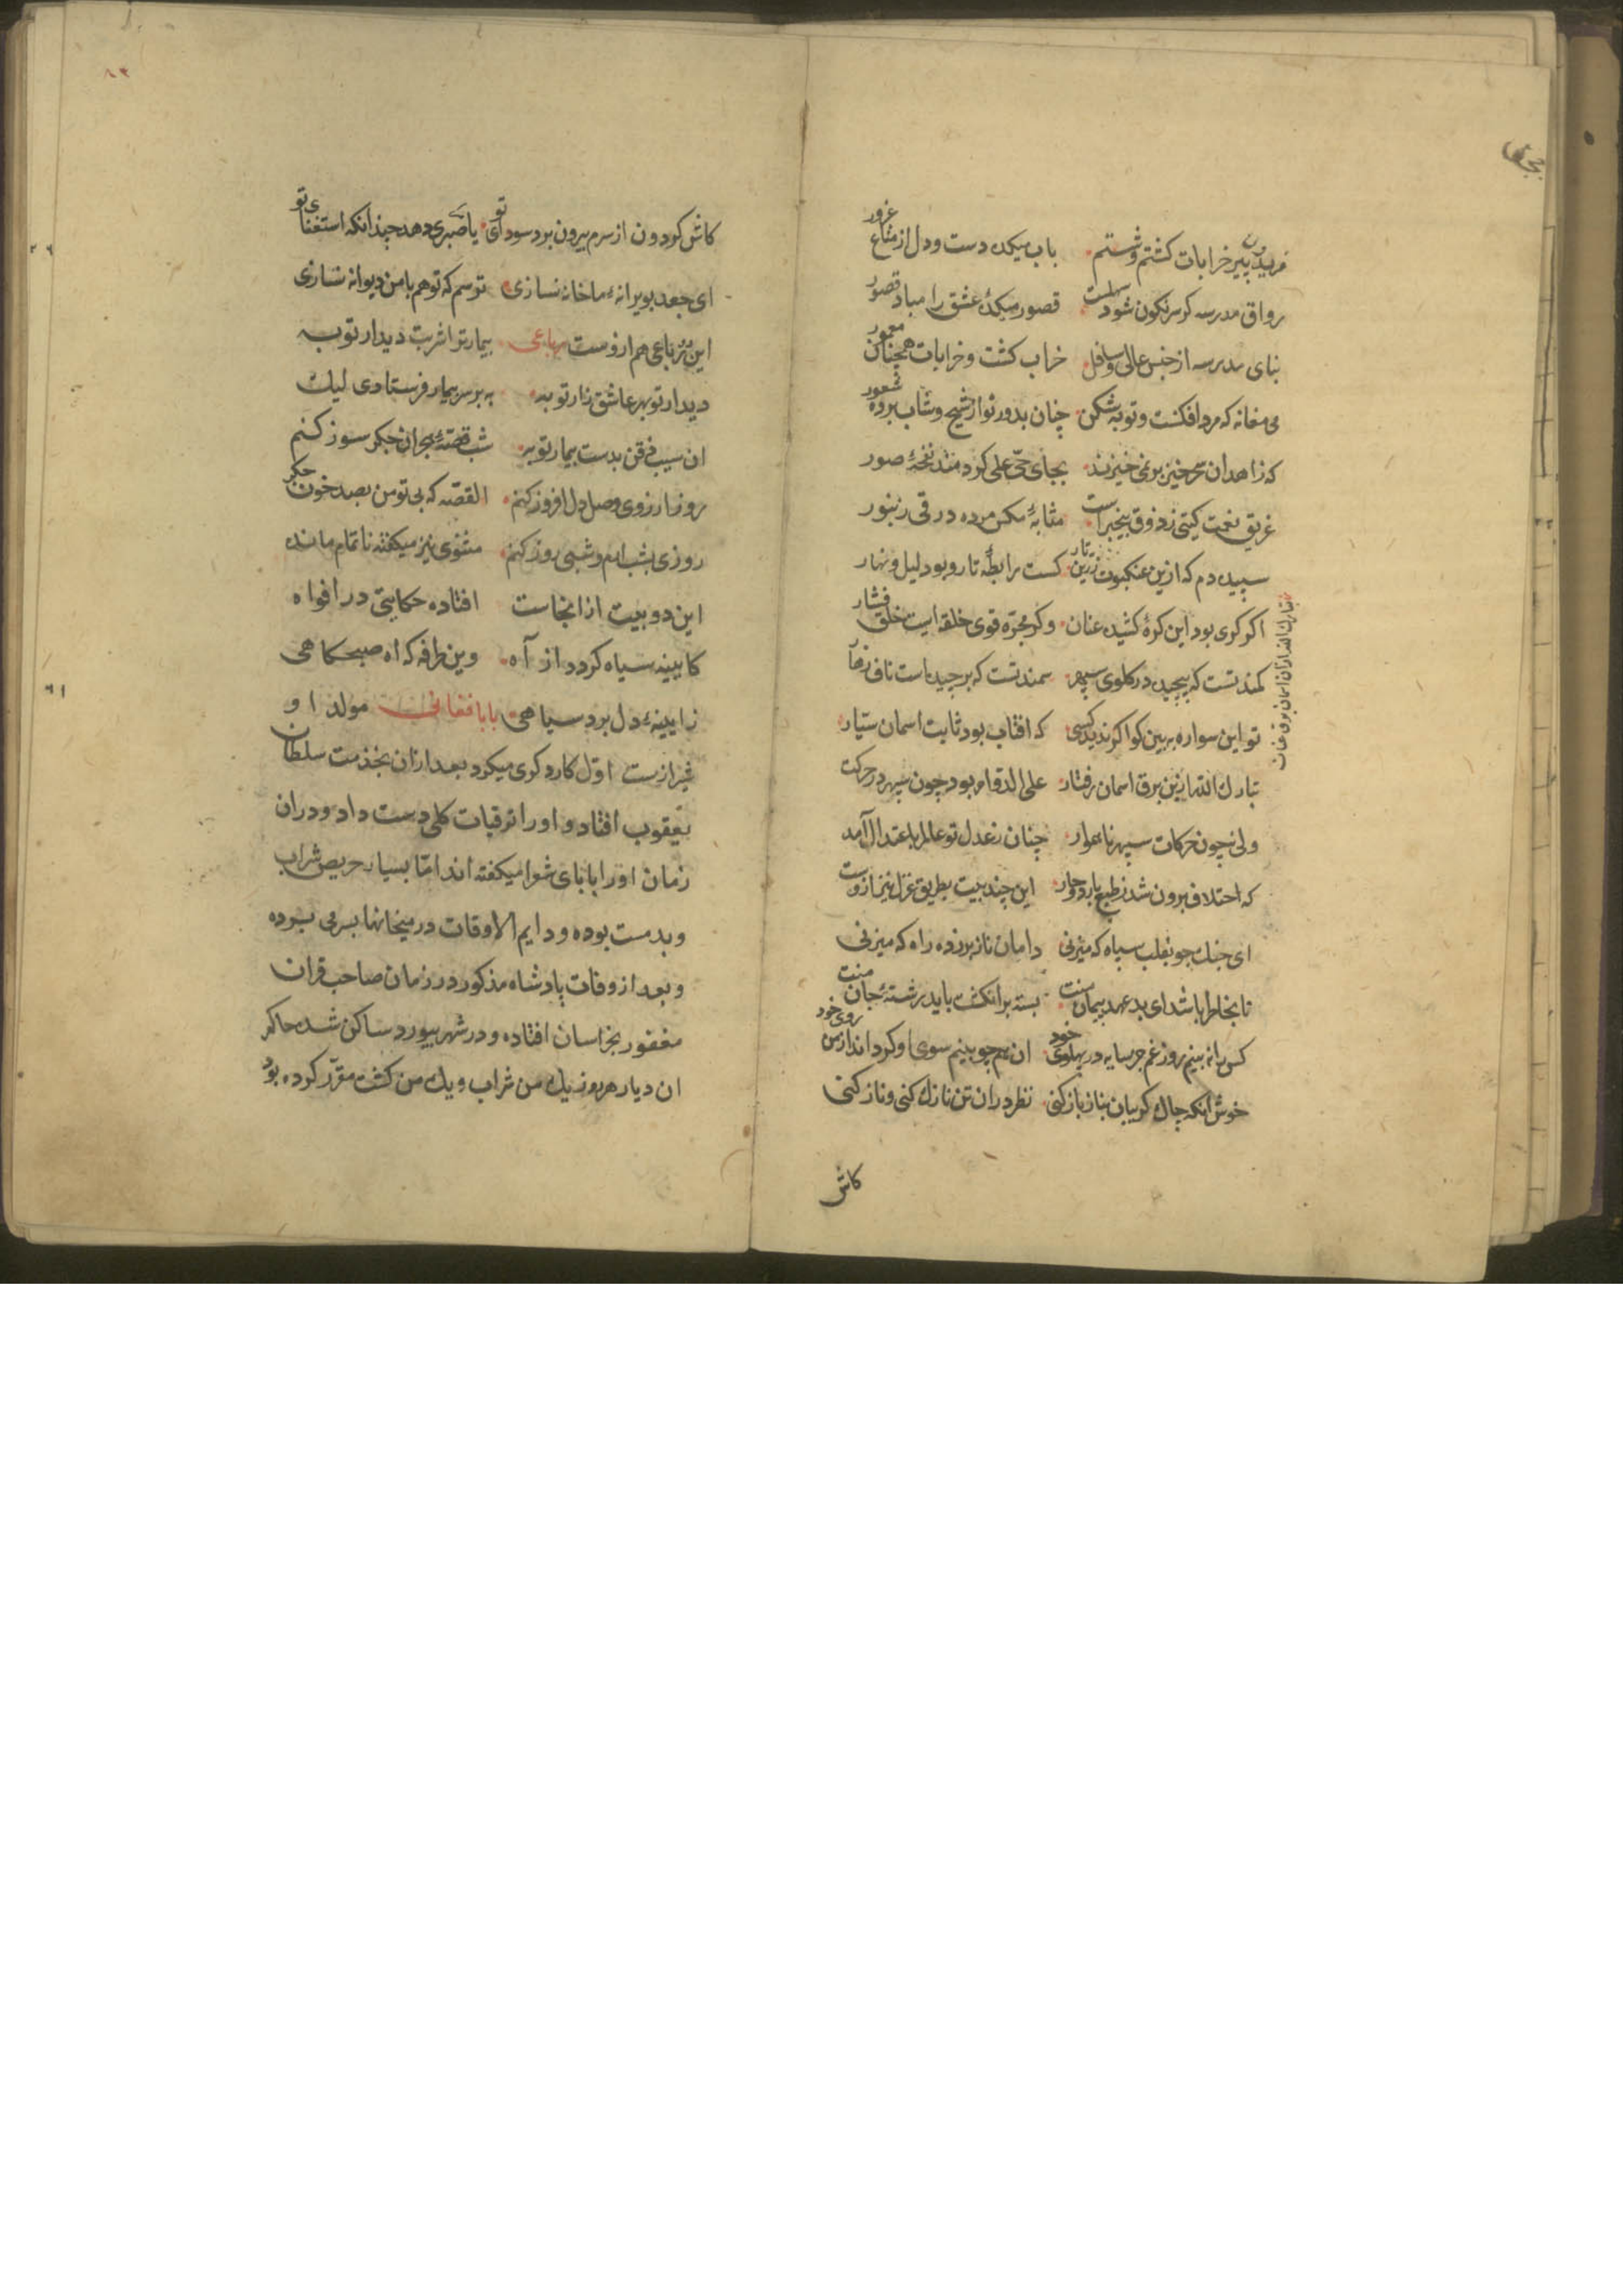 مرید پیر خرابات کشتم و شستم باب میکده دست و دل از متاع غرور
رواق مدرسه کر سرنکون شود سهلست قصور میکدهٔ عشق را مباد قصور
بنای مدرسه از جنس عالی و سافل خراب کشت و خرابات همچنان معمور
می مغانه که مرد افکنست و توبه شکن چنان بدور تو از شیخ و شاب برده شعور
که زاهدان سحرخیز بر نمی خیزند بجای حی علی کر دمند نفخهٔ صور
غریق نعمت کیتی ز ذوق بیخبر است مثابهٔ مکس مرده در قی زنبور
سپیده دم که ازین عنکبوت زرین تار کسست رابطهٔ تار و پود لیل و نهار
اکر کری بود این کرهٔ کشیده عنان و کر مجره قوی حلقه ایست حلق فشار
کمند تست که پیچیده در کلوی سپهر سمند تست که برچیده است ناف
تو این سواره ببین کو اکر ندید کسی که افتاب بود ثابت اسمان سیار
تبارک الله ازین برق اسمان رفتار علی الدوام بود چون سپهر در حرکت
ولی نه چون حرکات سپهر ناهموار چنان ز عدل تو عالم باعتدال آمد
که اختلاف برون شد ز طبع بارد و حار این چند بیت بطریق غزل نیز ازوست
ای جنک جو بقلب سپاه که میزنی دامان ناز بر زده راه که میزنی
تا بخاطر باشد ای بد عهد پیمان منت بسته بر انکشت باید رشتهٔ جان منت
کس را نه بینم روز غم جز سایه در پهلوی خود ان هم چو بینم سوی او کرداند از من روی خود
خوش انکه چاک کریبان بناز باز کنی نظر دران تن نازک کنی و ناز کنی
کاش
کاش کردون از سرم بیرون برد سودای تو یا صبری دهد چندانکه استغنای تو
ای جغد بویرانهٔ ما خانه نسازی ترسم که تو هم با من دیوانه نسازی
این رباعی هم ازوست رباعی بیمار ترا شربت دیدار تو به
دیدار تو بهر عاشق زار تو به به بر سر بیمار فرستادی لیک
ان سیب ذقن بدست بیمار تو به شب قصهٔ هجران جکر سوز کنم
روز ارزوی وصل دل افروز کنم القصه که بی تو من بصد خون جکر
روزی بشب ارم و شبی روز کنم مثنوی نیز میکفته ناتمام مانده
این دو بیت از انجاست افتاده حکایتی در افواه
کایینه سیاه کردد از آه وین طرفه که اه صبحکاهی
ز ایینهٔ دل برد سیاهی بابا فغانی مولد او
شیرازست اول کاردکری میکرد بعد ازان بخذمت سلطان
یعقوب افتاد و اورا ترقیات کلی دست داد و دران
زمان اورا بابای شعرا میکفته اند اما بسیار حریص شراب
و بدمست بوده و دایم الاوقات در میخانها بسر می برده
و بعد از وفات پادشاه مذکور در زمان صاحب قران
مغفور بخراسان افتاده و در شهر بیورد ساکن شد حاکم
ان دیار هر روز یک من شراب و یک من کشت مقرر کرده بود